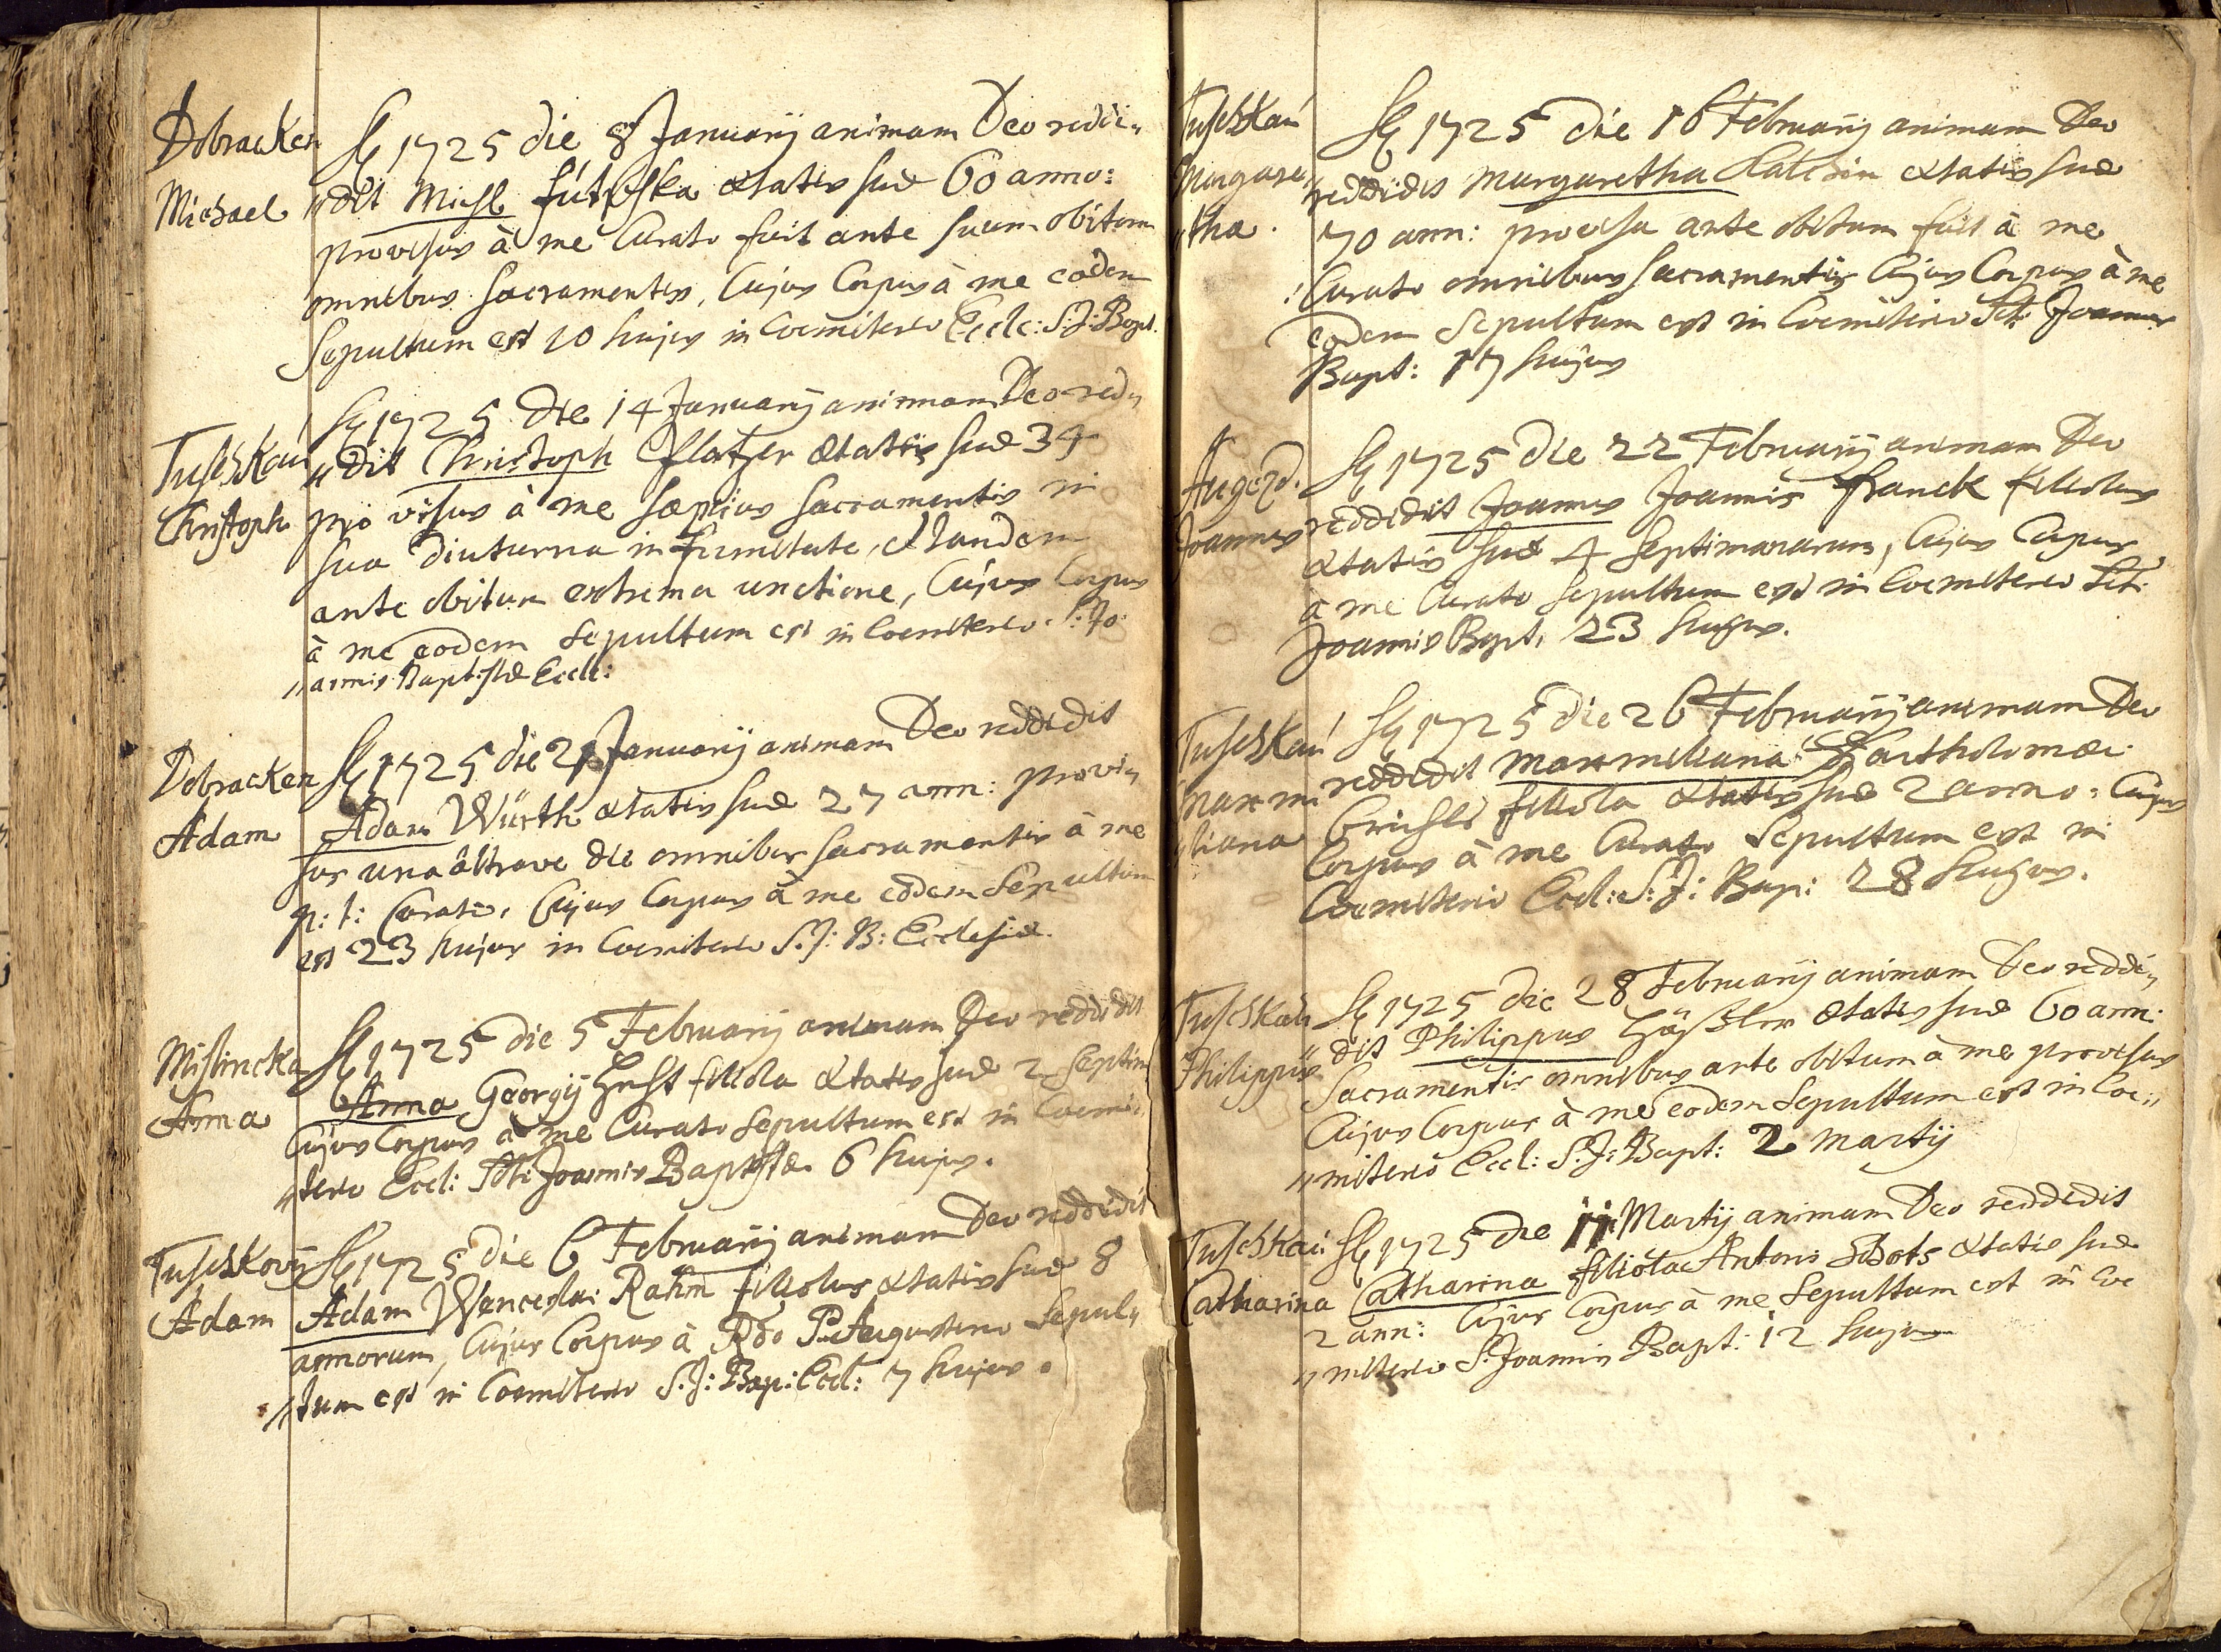 Dobracken
Michael
A 1725 die 8 Januarij animam Deo reddi„
„dit Michl aetatis suae 60 anno:
provisus à me Curato fuit ante suum obitum
omnibus sacramentis, Cujus Corpus à me eodem
Sepultum est 10 hujus in Coemiterio Eccle: S: J: Bapt.
Tuschkau
Christoph
A 1725 die 14 Januarij animam Deo red„
„dit Christoph Platzer aetatis suae 34
pro visus à me saepius sacramentis in
sua diuturna infirmitate, et tandem
ante obitum extrema unctione, Cujus Corpus
à me eodem Sepultum est in Coemiterio S: Jo„
„annis Baptistae Eccle:
Dobracken
Adam
A 1725 die 21 Januarij animam Deo reddidit
Adam Würth aetatis suae 27 ann: provi„
sus una altrave die omnibus sacramentis à me
p: t: Curato, Cujus Corpus à me eodem Sepultum
est 23 hujus in Coemiterio S. J: B: Ecclesiae.
Mislincka
Anna
A 1725 die 5 Februarij animam Deo reddidit
Anna Georgij filiola aetatis suae 2 Septim
Cujus Corpus à me Curato Sepultum est in Coemi„
„terio Eccl: Sti Joannis Baptistae 6 hujus.
Tuschkovij
Adam
A 1725 die 6 Februarij animam Deo reddidit
Adam Wenceslai Rahm filiolus aetatis suae 8
annorum, Cujus Corpus à Rdo P: Augustino Sepul„
„tum est in Coemiterio S. J: Bap: Eccl: 7 hujus.
Tuschkau
Margare„
„tha.
A 1725 die 16 Februarij animam Deo
reddidit Margaretha aetatis suae
70 ann: provisa ante obitum fuit à me
Curato omnibus sacramentis Cujus Corpus à me
eodem Sepultum est in Coemiterio Sti Joannis
Bapt: 17 hujus
Augezd.
Joannes
A 1725 die 22 Februarij animam Deo
reddidit Joannes Joannis Franck filiolus
aetatis suae 4 septimanarum, Cujus Corpus
à me Curato sepultum est in Coemiterio Sti
Joannis Bapt. 23 hujus.
Tuschkau
Maxmi
„liana
A 1725 die 26 Februarij animam Deo
reddidit Maxmiliana Bartholomaei
filiola aetatis suae 2 anno: Cujus
Corpus à me Curato Sepultum est in
Coemiterio Eccl: S: J: Bap: 28 hujus.
Tuschkau
Philippus
A 1725 die 28 Februarij animam Deo reddi„
„dit Philippus aetatis suae 60 ann:
Sacramentis omnibus ante obitum à me provisus
Cujus Corpus à me eodem Sepultum est in Coe„
„miterio Eccl: S. J: Bapt: 2 Martij
Tuschkau
Catharina
A 1725 die 11 Martij animam Deo reddidit
Catharina filiola Antoni aetatis suae
2 ann: Cujus Corpus à me Sepultum est in Coe
„miterio S: Joannis Bapt: 12 hujus